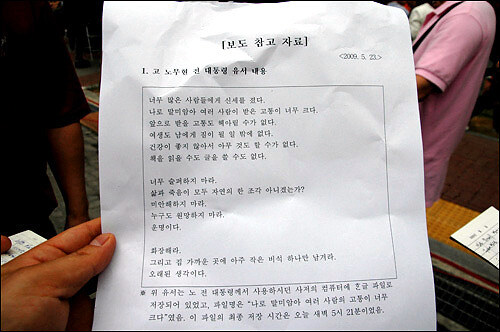 [보도 참고 자료]
<2009. 5. 23.>
1. 고 노무현 전 대통령 유서 내용
너무 많은 사람들에게 신세를 졌다.
나로 말미암아 여러 사람이 받은 고통이 너무 크다.
앞으로 받을 고통도 헤아릴 수가 없다.
여생도 남에게 짐이 될 일 밖에 없다.
건강이 좋지 않아서 아무 것도 할 수가 없다.
책을 읽을 수도 글을 쓸 수도 없다.
너무 슬퍼하지 마라.
삶과 죽음이 모두 자연의 한 조각 아니겠는가?
미안해하지 마라.
누구도 원망하지 마라.
운명이다.
화장해라.
그리고 집 가까운 곳에 아주 작은 비석 하나만 남겨라.
오래된 생각이다.
※ 위 유서는 노 전 대통령께서 사용하시던 사저의 컴퓨터에 ᄒᆞᆫ글 파일로
저장되어 있었고, 파일명은 "나로 말미암아 여러 사람의 고통이 너무
크다"였음. 이 파일의 최종 저장 시간은 오늘 새벽 5시 21분이었음.